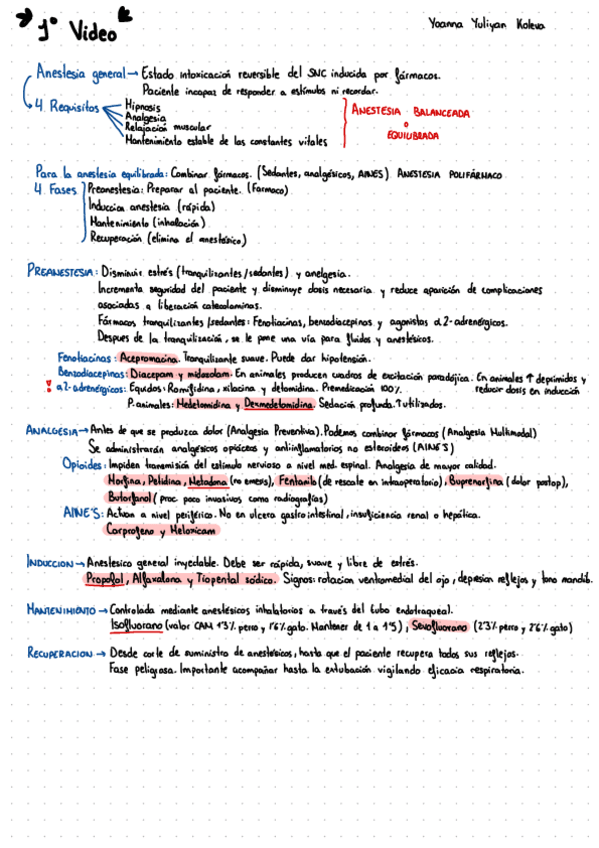 1º Video
Yoanna Yuliyan Koleva
Anestesia general → Estado intoxicación reversible del SNC inducida por fármacos.
Paciente incapaz de responder a estímulos ni recordar.
4 Requisitos
Hipnosis
Analgesia
Relajación muscular
Mantenimiento estable de las constantes vitales
ANESTESIA BALANCEADA
o
EQUILIBRADA
Para la anestesia equilibrada: Combinar fármacos. (Sedantes, analgésicos, AINES) ANESTESIA POLIFÁRMACO
4 Fases
Preanestesia: Preparar al paciente. (Farmaco)
Induccion anestesia (rápida)
Mantenimiento (inhalación)
Recuperación (elimina el anestésico)
PREANESTESIA: Disminuir estrés (tranquilizantes/sedantes) y anelgesia.
Incrementa seguridad del paciente y disminuye dosis necesaria y reduce aparición de complicaciones
asociadas a liberación catecolaminas.
Fármacos tranquilizantes/sedantes: Fenotiacinas, benzodiacepinas y agonistas α2-adrenérgicos.
Despues de la tranquilización, se le pone una vía para fluidos y anestésicos.
Fenotiacinas: Acepromacina. Tranquilizante suave. Puede dar hipotensión.
Benzodiacepinas: Diacepam y midazolam. En animales producen cuadros de excitación paradójica. En animales ↑ deprimidos y
reducir dosis en inducción
! α2-adrenérgicos: Equidos: Romifidina, xilacina y detomidina. Premedicación 100%.
P.animales: Medetomidina y Dexmedetomidina. Sedación profunda. ↑ utilizados.
ANALGESIA → Antes de que se produzca dolor (Analgesia Preventiva). Podemos combinar fármacos (Analgesia Multimodal)
Se administrarán analgésicos opiáceos y antiinflamatorios no esteroideos (AINE'S)
Opioides: Impiden transmisión del estimulo nervioso a nivel med. espinal. Analgesia de mayor calidad.
Morfina, Petidina, Metadona (no emesis), Fentanilo (de rescate en intraoperatorio), Buprenorfina (dolor postop),
Butorfanol (proc. poco invasivos como radiografías)
AINE'S: Actuan a nivel periférico. No en ulcera gastrointestinal, insuficiencia renal o hepática.
Carprofeno y Meloxicam
INDUCCION → Anestesico general inyectable. Debe ser rápida, suave y libre de estrés.
Propofol, Alfaxalona y Tiopental sódico. Signos: rotacion ventromedial del ojo, depresion reflejos y tono mandib.
MANTENIMIENTO → Controlada mediante anestésicos inhalatorios a través del tubo endotraqueal.
Isofluorano (valor CAM 1'3% perro y 1'6% gato. Mantener de 1 a 1'5), Sevofluorano (2'3% perro y 2'6% gato)
RECUPERACION → Desde corte de suministro de anestésicos, hasta que el paciente recupera todos sus reflejos.
Fase peligrosa. Importante acompañar hasta la extubación vigilando eficacia respiratoria.